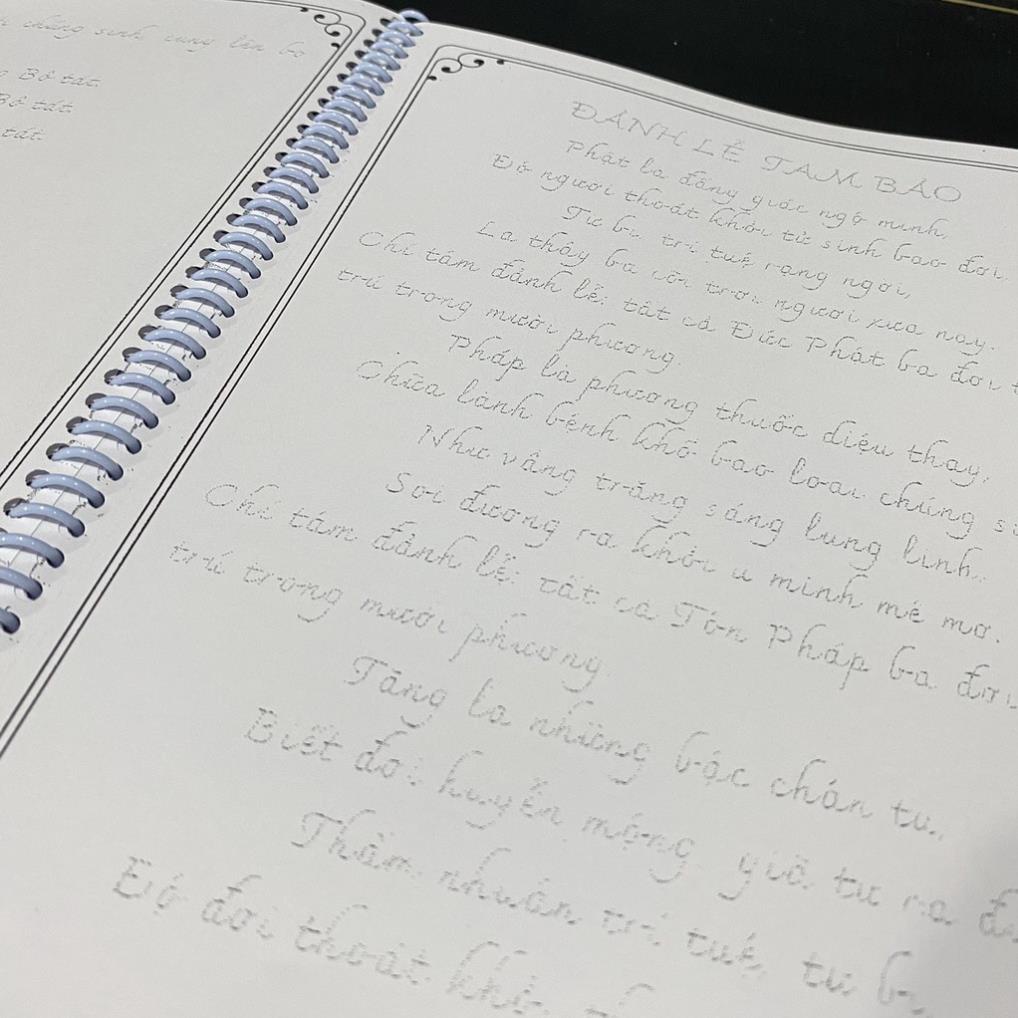 chúng sinh cùng lên bờ
Bồ tát.
Bồ tát.
tát.
ĐẢNH LỄ TAM BẢO
Phật là đấng giác ngộ minh,
Độ người thoát khỏi tử sinh bao đời.
Từ bi, trí tuệ rạng ngời,
Là thầy ba cõi trời người xưa nay.
Chí tâm đảnh lễ: tất cả Đức Phật ba đời
trú trong mười phương.
Pháp là phương thuốc diệu thay,
Chữa lành bệnh khổ bao loài chúng
Như vầng trăng sáng lung linh,
Soi đường ra khỏi u minh mê mờ.
Chí tâm đảnh lễ: tất cả Tôn Pháp ba đời
trú trong mười phương.
Tăng là những bậc chân tu,
Biết đời huyễn mộng, giã từ ra
Thấm nhuần trí tuệ, từ
Độ đời thoát